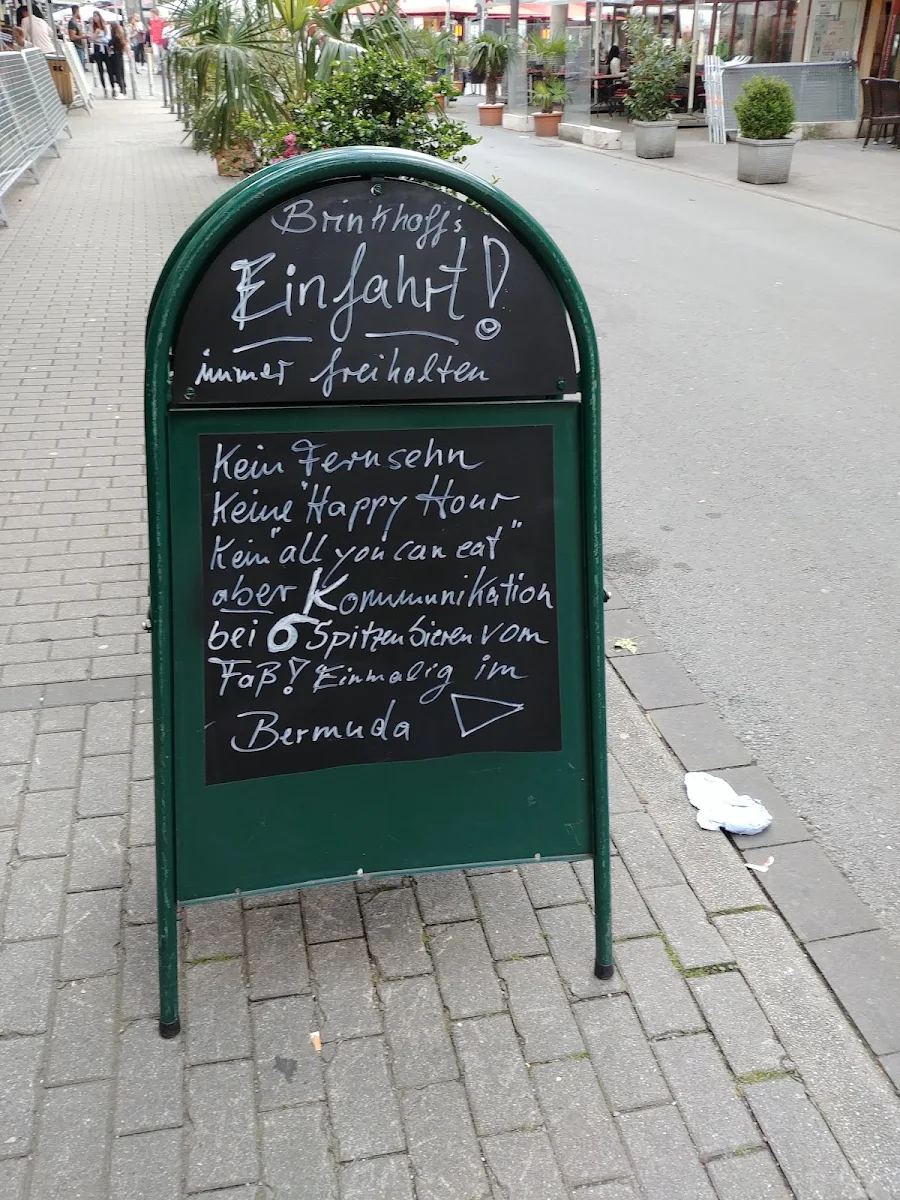 Brinkhoff's
Einfahrt!
immer freihalten
Kein Fernsehn
Keine "Happy Hour
Kein "all you can eat"
aber Kommunikation
bei 6 Spitzenbieren vom
Faß! Einmalig im
Bermuda